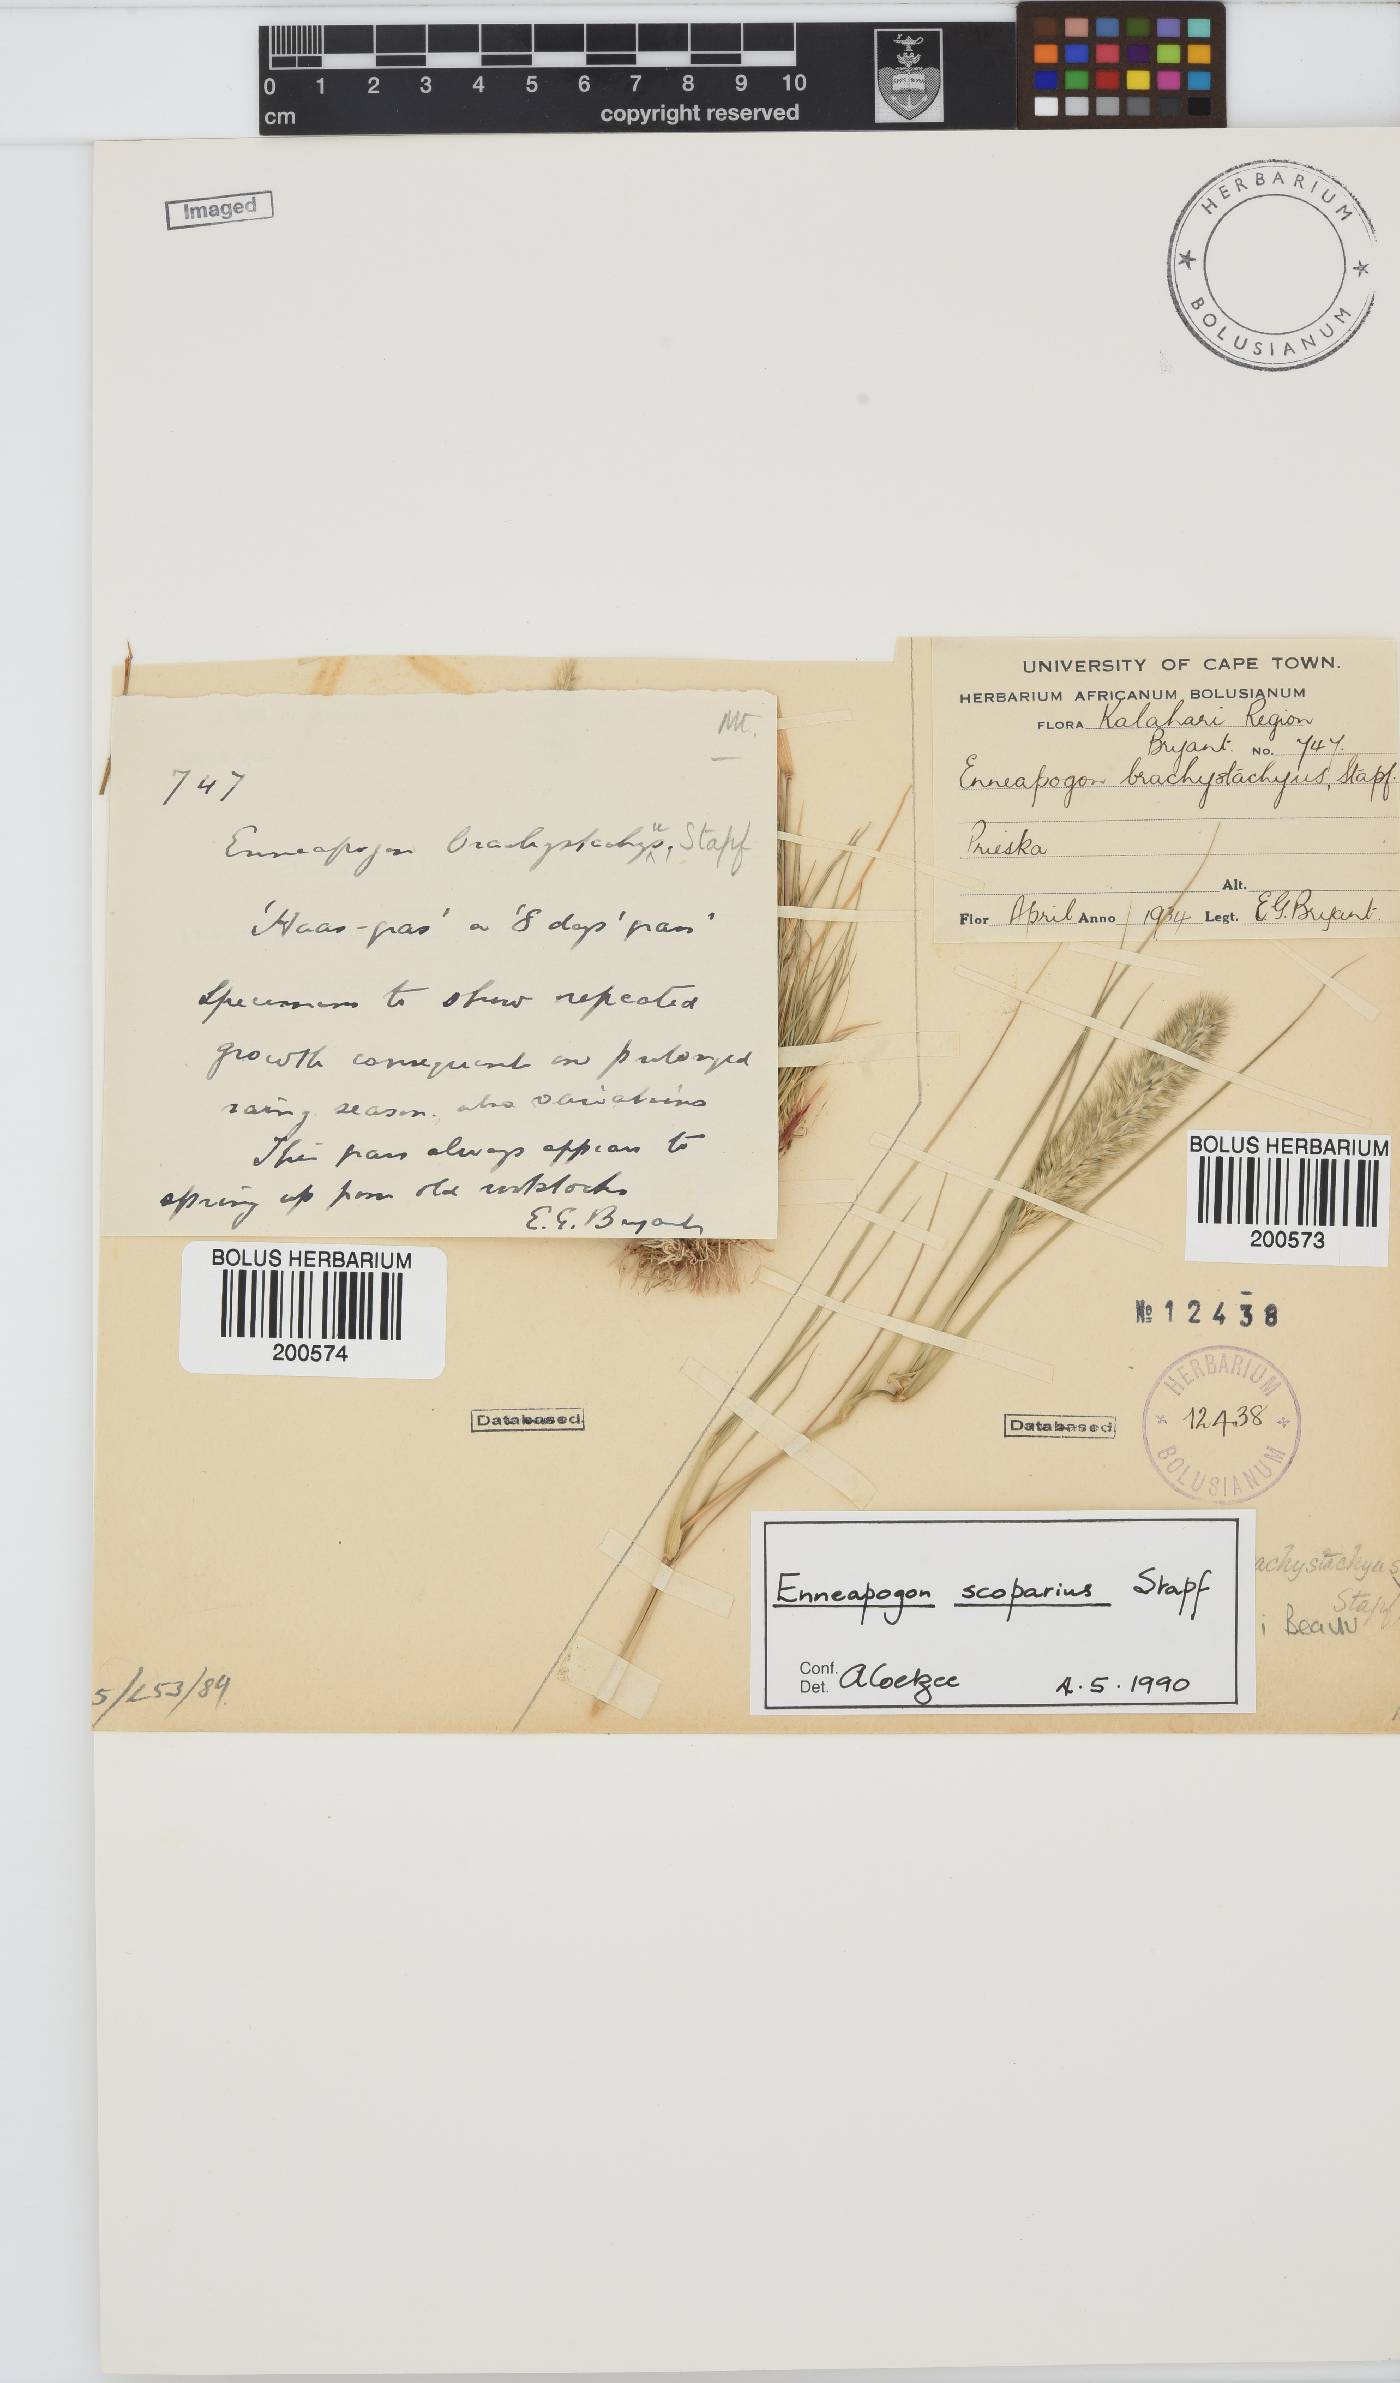 0 1 2 3 4 5 6 7 8 9 10
cm
copyright reserved
Imaged
HERBARIUM
BOLUSIANUM
UNIVERSITY OF CAPE TOWN.
HERBARIUM AFRICANUM BOLUSIANUM
FLORA Kalahari Region
Bryant. No. 747.
Enneapogon brachystachyus, Stapf.
Prieska
Alt.
Flor April Anno 1934 Legt. E.G. Bryant.
Mt.
747
Enneapogon brachystachyus, Stapf
'Haas-gras' or '8 days' grass'
Specimens to show repeated
growth consequent on prolonged
rainy season. also variations
This grass always appears to
spring up from old rootstocks
E. G. Bryant
BOLUS HERBARIUM
200574
BOLUS HERBARIUM
200573
№ 12438
HERBARIUM
12438
BOLUSIANUM
Databased
Databased
Enneapogon scoparius Stapf
Conf.
Det. A Coetzee 4.5.1990
achystachyus
Stapf
i Beauv
5/L53/89